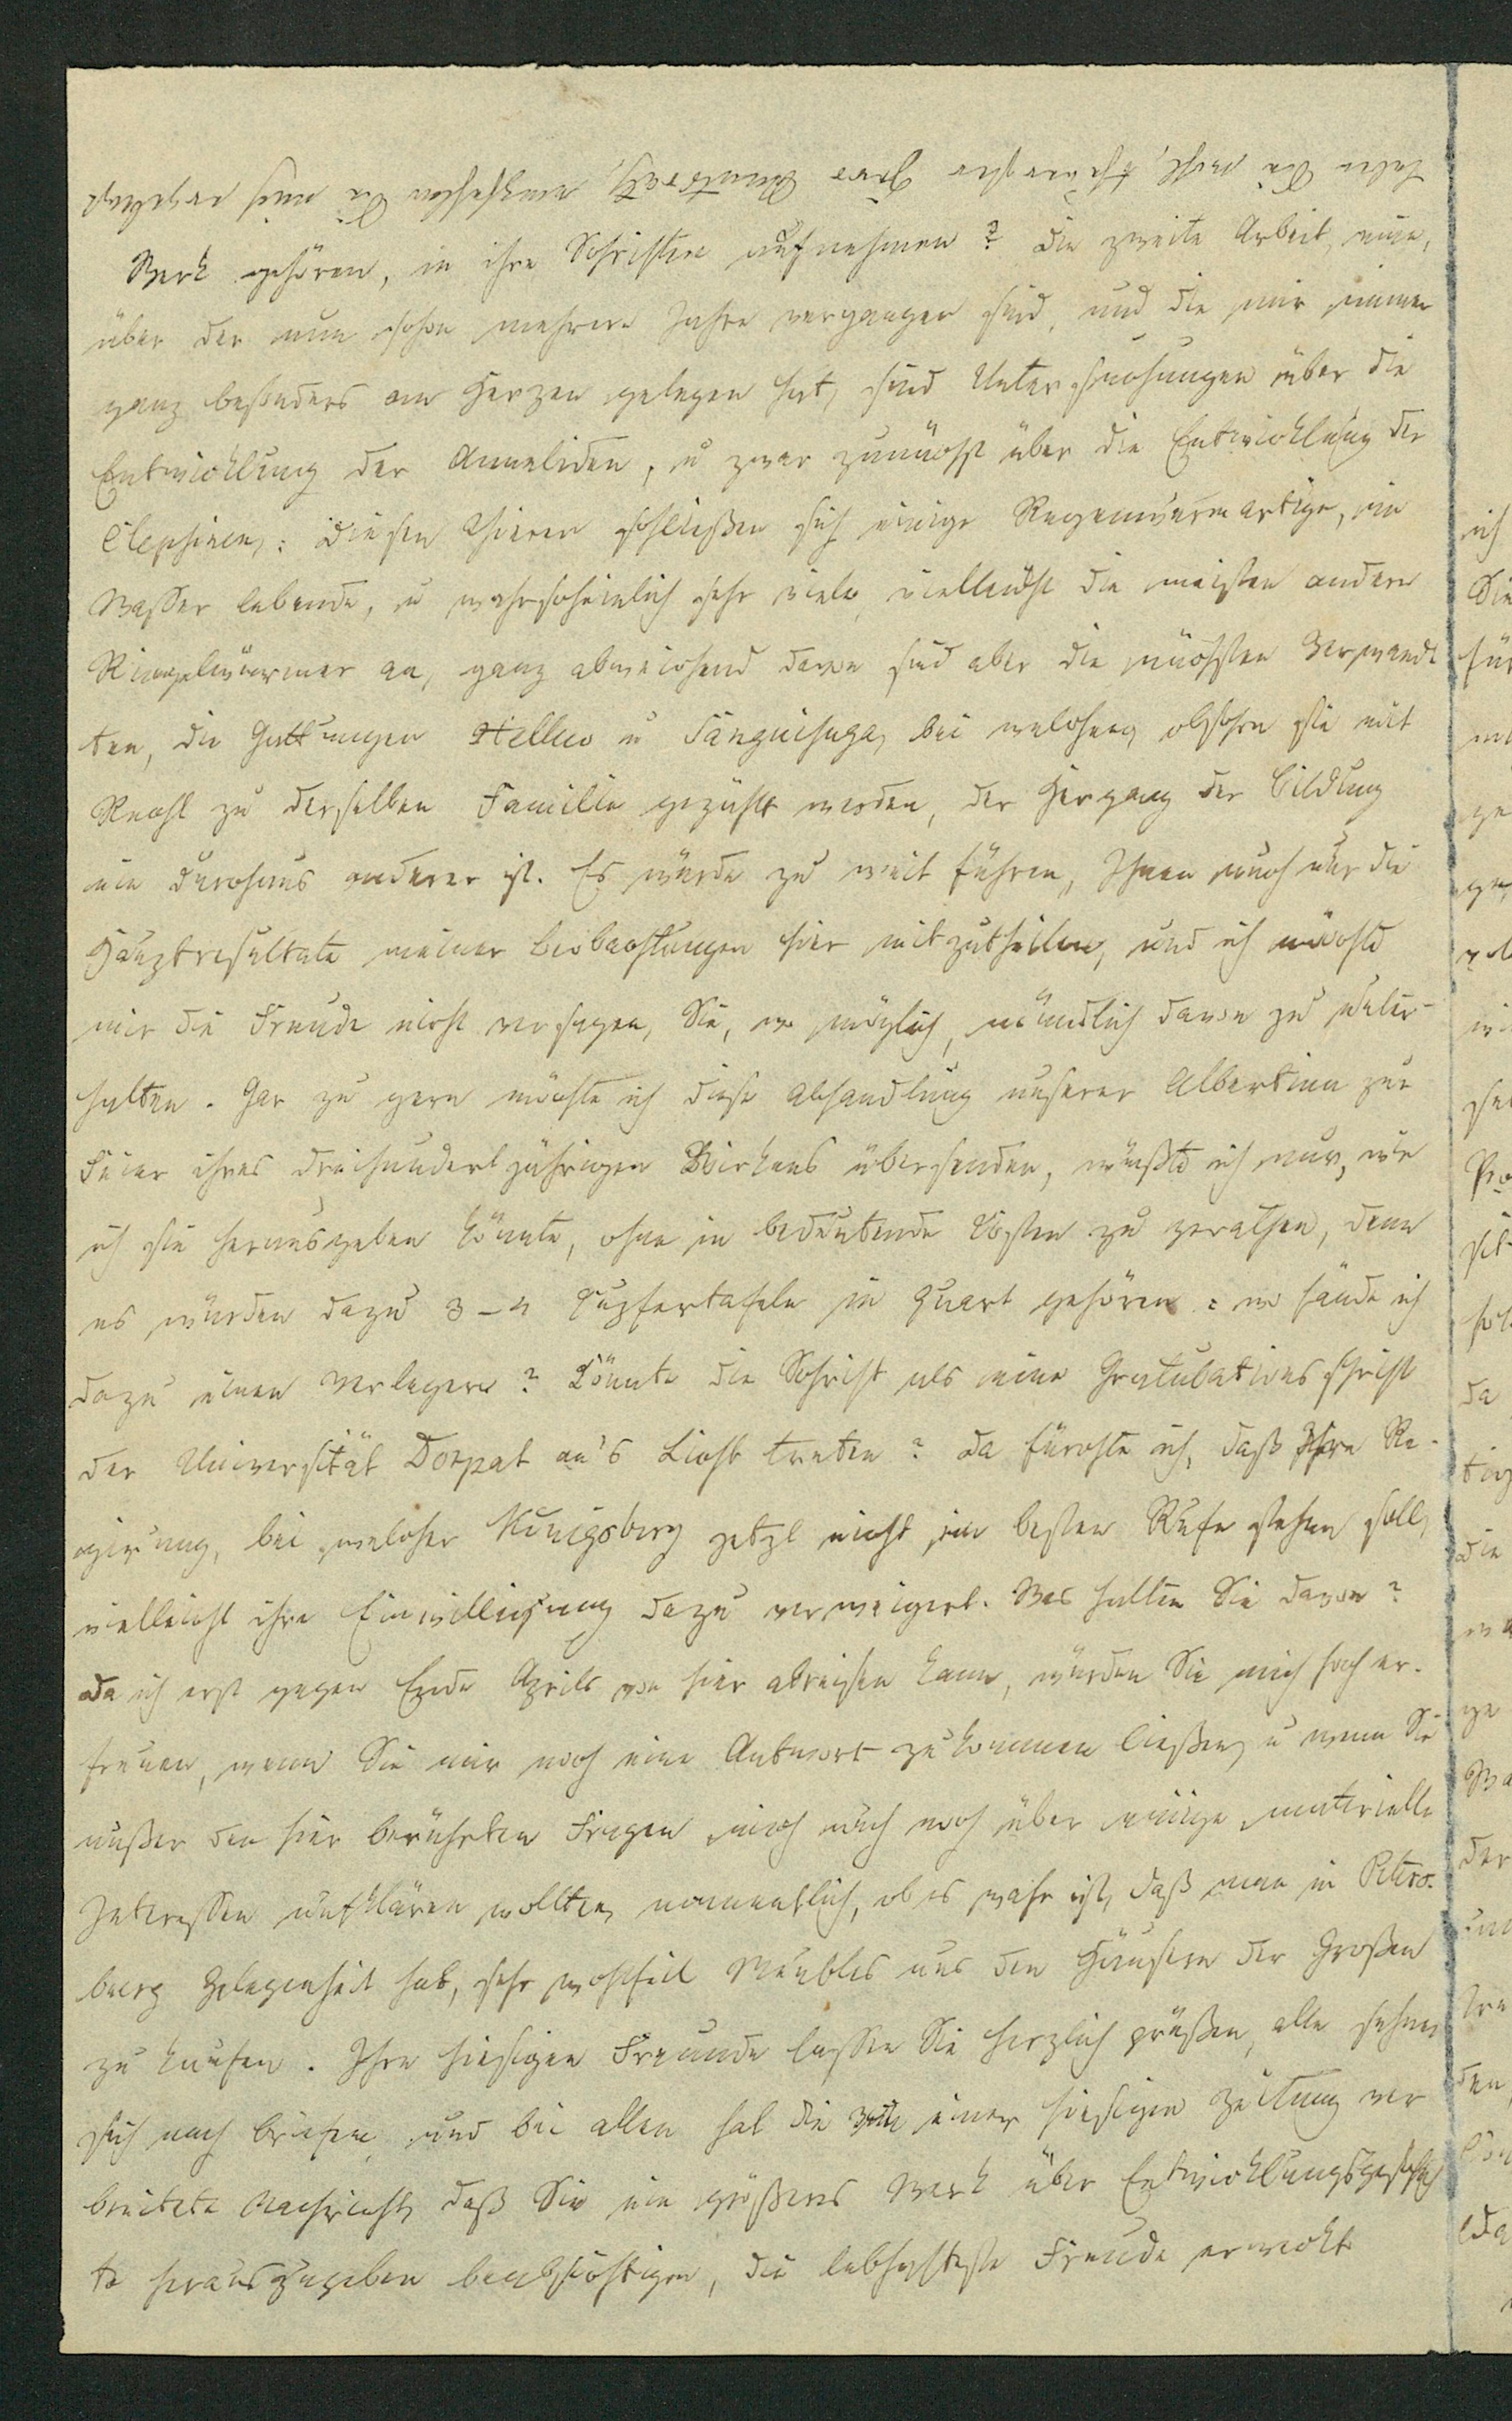 Leben Sie wohl, theuerster Herr empfehlen Sie mich
Werk gehören, in ihre Schriften aufnehmen? Die zweite Arbeit, eine,
über der nun schon mehrere Jahre vergangen sind, und die mir immer
ganz besonders am Herzen gelegen hat, sind Untersuchungen über die
Entwicklung der Anneliden, u zwar zunächst über die Entwicklung der
Clepsinen: diesen Thieren schließen sich einige Regenwurmartige, im
Wasser lebende, u wahrscheinlich sehr viele, vielleicht die meisten andern
Ringelwürmer an, ganz abweichend davon sind aber die nächsten Verwand¬
ten, die Gattungen Helluo u Sanguisuga, bei welchen, obschon sie mit
Recht zu derselben Familie gezählt werden, der Hergang der Bildung
ein durchaus anderer ist. Es würde zu weit führen, Ihnen auch nur die
Hauptresultate meiner Beobachtungen hier mitzutheilen, und ich möchte
mir die Freude nicht versagen, Sie, wo möglich, mündlich davon zu unter¬
halten. Gar zu gern möchte ich diese Abhandlung unserer Albertina zur
Feier ihres dreihundertjährigen Wirkens übersenden, wüßte ich nur, wie
ich sie herausgeben könnte, ohne in bedeutende Kosten zu gerathen, denn
es würden dazu 3-4 Kupfertafeln in Quart gehören: wo fände ich
dazu einen Verleger? Könnte die Schrift als eine Gratulationsschrift
der Universität Dorpat an's Licht treten? Da fürchte ich, daß Ihre Re¬
gierung, bei welcher Königsberg jetzt nicht im besten Rufe stehen soll,
vielleicht ihre Einwilligung dazu verweigert. Was halten Sie davon?
Da ich erst gegen Ende Aprils von hier abreisen kann, würden Sie mich hoch er¬
freuen, wenn Sie mir noch eine Antwort zukommen ließen, u wenn Sie
außer den hier berührten Fragen mich auch noch über einige materielle
Interessen aufklären wollten, namentlich, ob es wahr ist, daß man in Peters¬
burg Gelegenheit hat, sehr wohlfeil Meubles aus den Häusern der Großen
zu kaufen. Ihre hiesigen Freunde lassen Sie herzlich grüßen, alle sehnen
sich nach Briefen, und bei allen hat die einer hiesigen Zeitung ver
breitete Nachricht, daß Sie ein größeres Werk über Entwicklungsgeschich
te herauszugeben beabsichtigen, die lebhafteste Freude erweckt